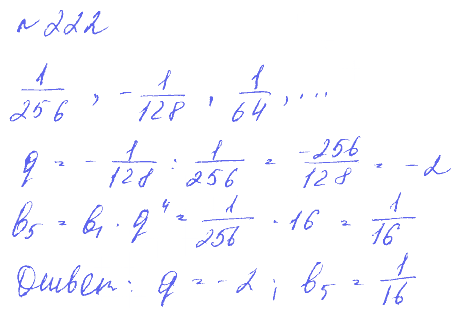 №222
1/256, -1/128, 1/64, ...
q = -1/128 : 1/256 = -256/128 = -2
b₅ = b₁ · q⁴ = 1/256 · 16 = 1/16
Ответ: q = -2; b₅ = 1/16